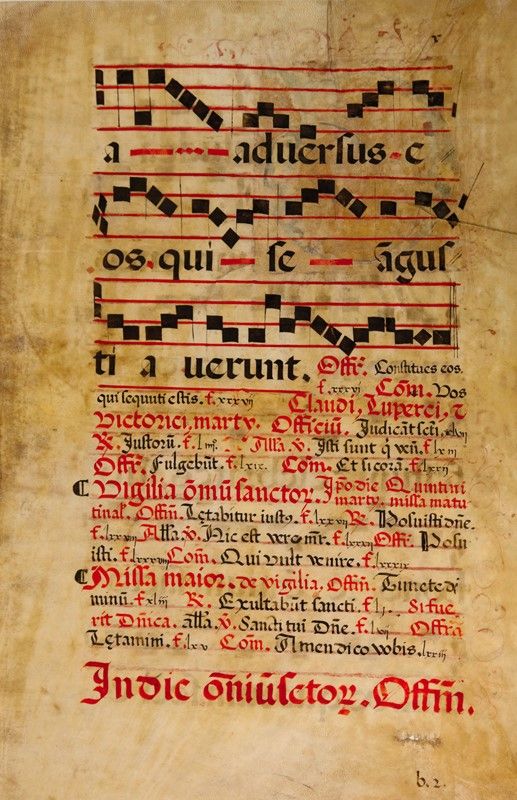 a aduersus e
os. qui se āgus
ti a uerunt. Offꝛ. Constitues eos.
f. xxxvj Com̄. Vos
qui sequuti estis. f. xxxvij Claudi, Luperci, ꝛ
Victorici, marty. Officiū. Judicāt sct̄i.
℟. Justorū. f. Alla. ℣. Isti sunt q̇ uen̄. f.
Offꝛ. Fulgebūt. f. lxix. Com. Et si corā. f. lxxij
Vigilia om̄iū sanctoꝝ. Ip̄o die Quintini
marty. missa matu
tinal. Offm̄. Lętabitur iustꝰ. f. lxxvij ℟. Posuisti dn̄e.
f. lxxviij Alla. ℣. Hic est vere mr̄. f. lxxxij Offꝛ. Posu
isti. f. lxxxviij Com̄. Qui vult venire. f. lxxxix
Missa maior. de vigilia. Offm̄. Timete dō
minū. f. xliij ℟. Exultabūt sancti. f. lj. Si fue
rit Dn̄ica. alla. ℣. Sancti tui Dn̄e. f. lxij Offꝛa
Lętamini. f. lxv Com̄. Amen dico vobis. lxxiij
In die om̄iū sctoꝝ. Offm̄.
b. 2.